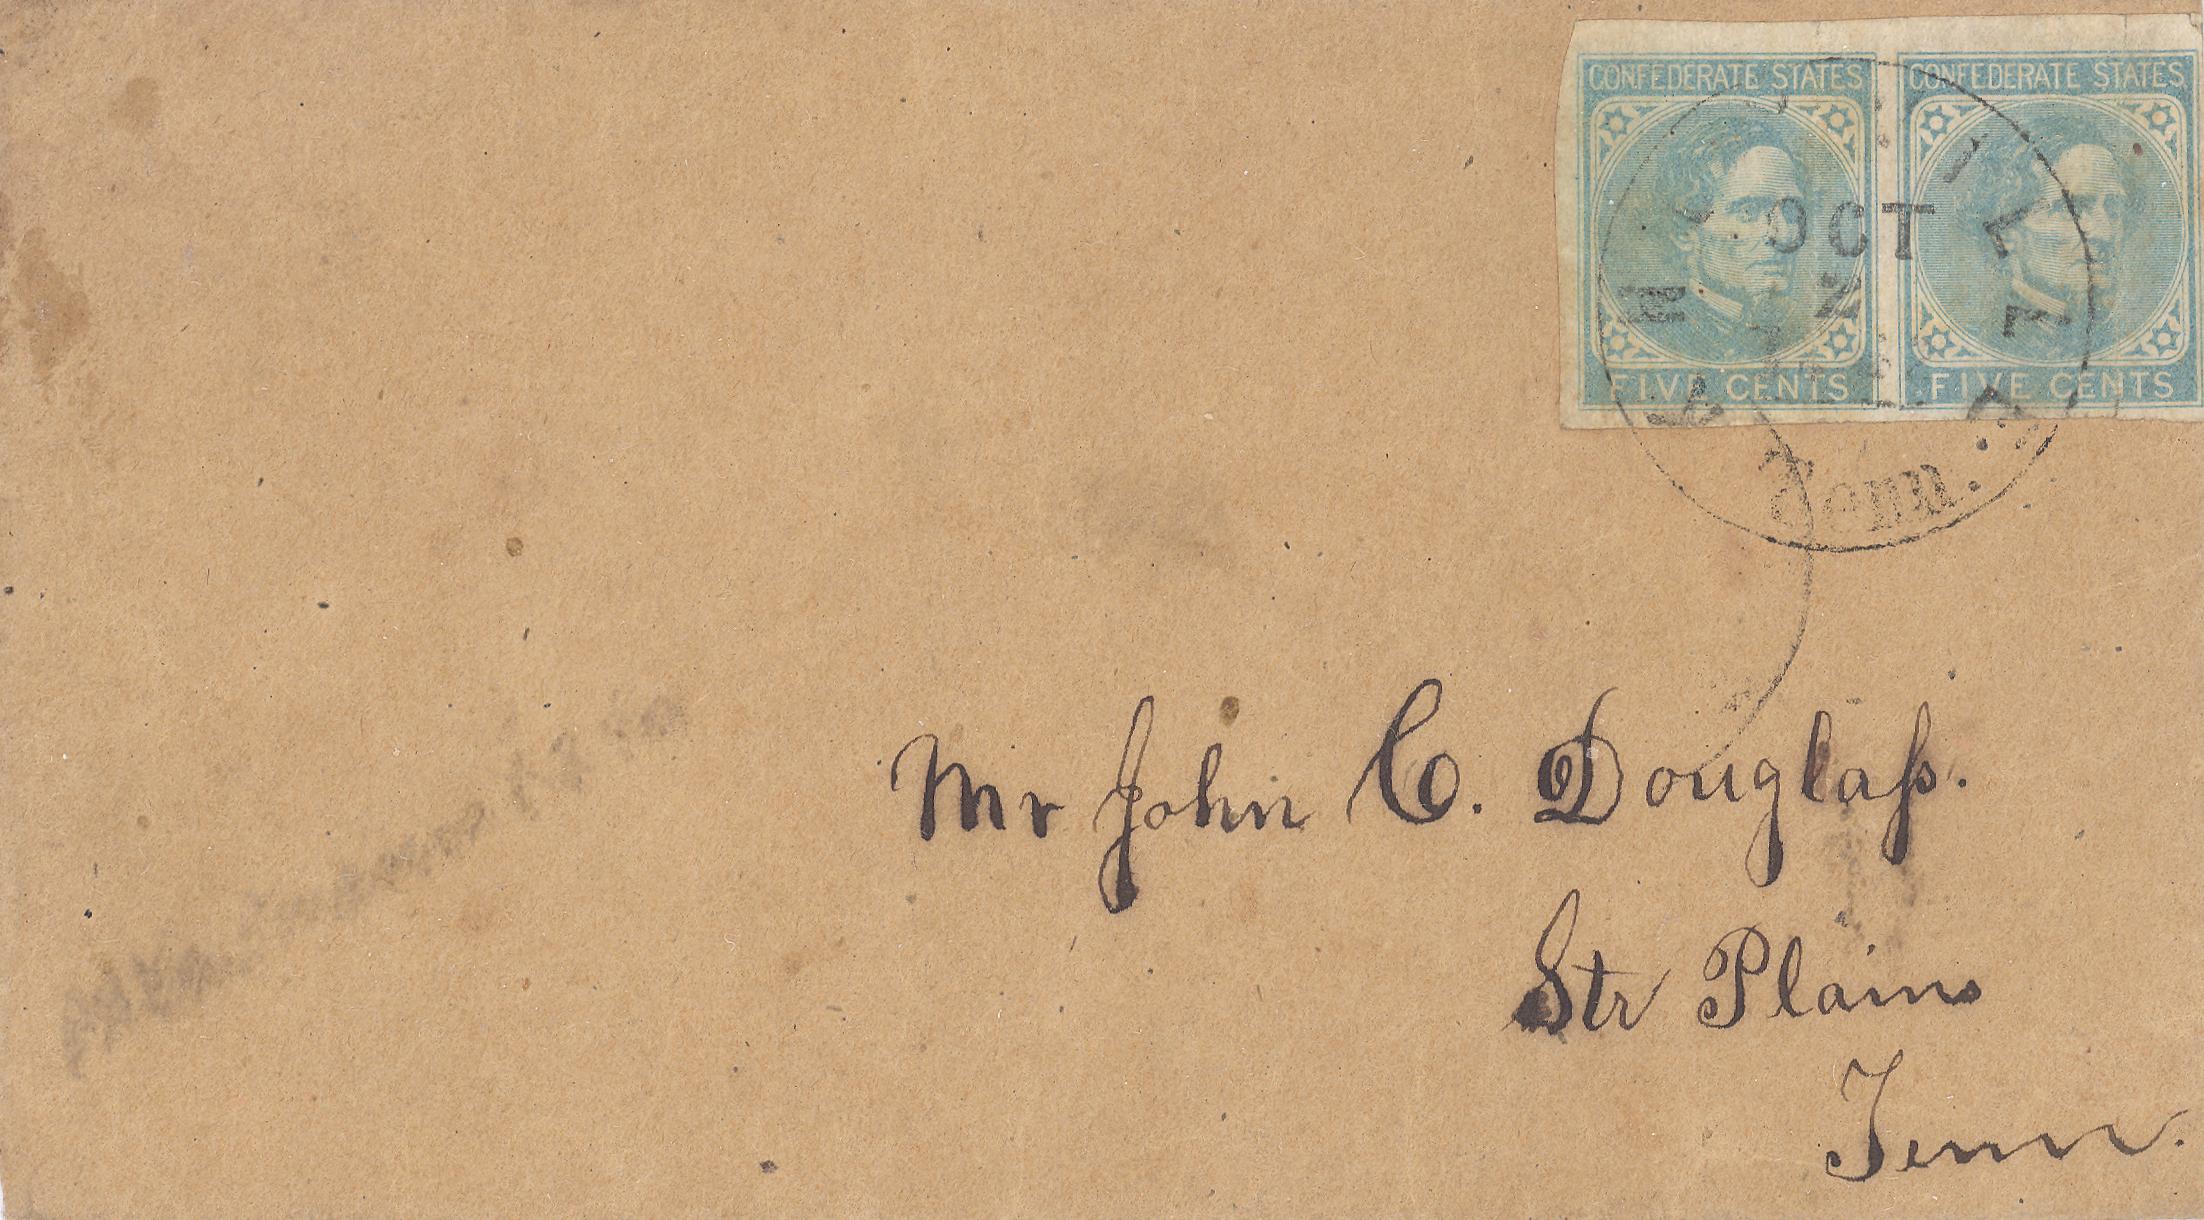 CONFEDERATE STATES CONFEDERATE STATES
OCT
FIVE CENTS FIVE CENTS
Tenn.
Mr John C. Douglaſs.
Str Plains
Tenn.